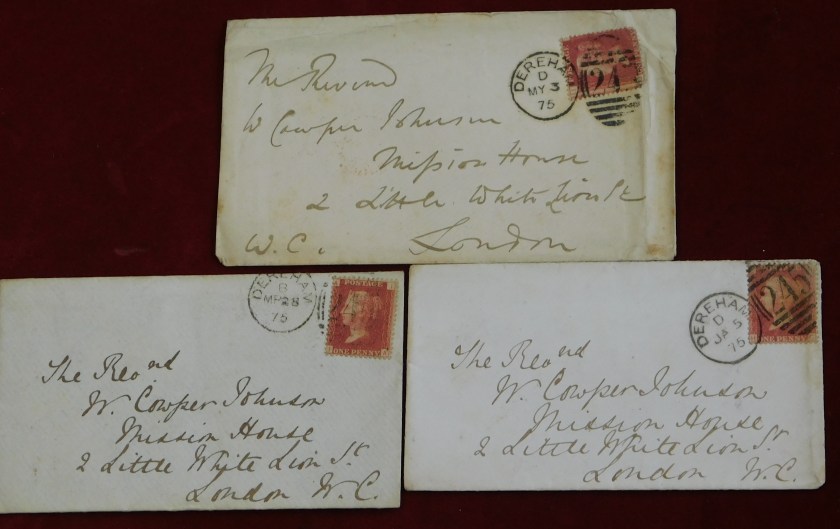 DEREHAM
D
MY 3
75
24
The Reverend
W Cowper Johnson
Mission House
2 Little White Lion St
W.C. London
DEREHAM
B
MR 28
75
POSTAGE
ONE PENNY
The Revnd
W. Cowper Johnson
Mission House
2 Little White Lion St.
London W.C.
DEREHAM
D
JA 5
75
245
ONE PENNY
The Revnd
W. Cowper Johnson
Mission House
2 Little White Lion St.
London W.C.